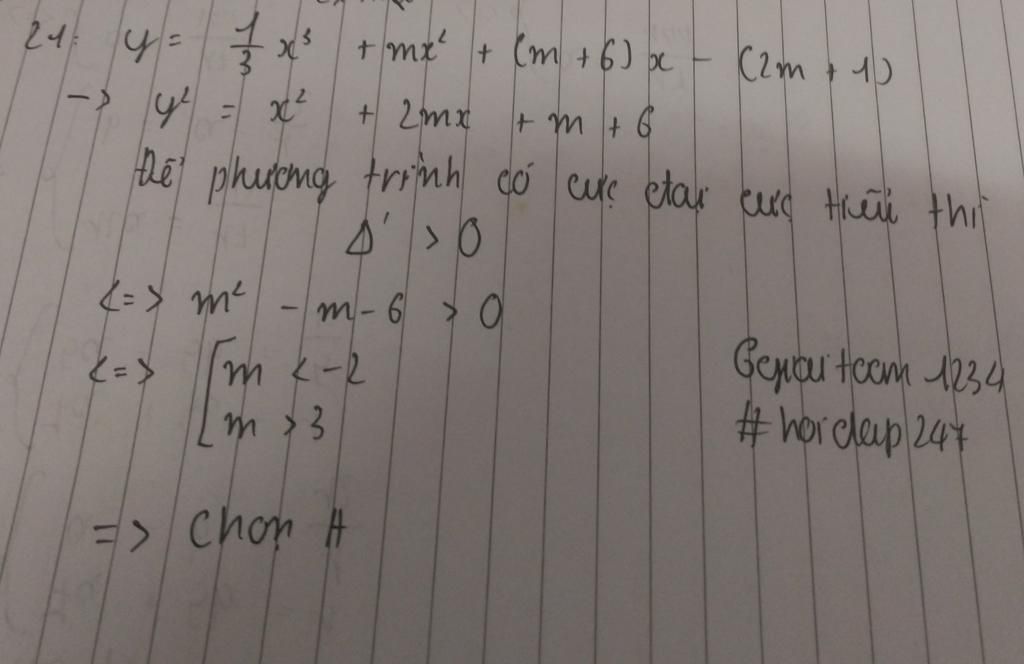 21: y = 1/3 x³ + mx² + (m + 6) x - (2m + 1)
-> y² = x² + 2mx + m + 6
Để phương trình có cực đtại cực tiểu thì
Δ' > 0
<=> m² - m - 6 > 0
<=> [ m < -2
m > 3
team 1234
# hoidap 247
=> Chọn A